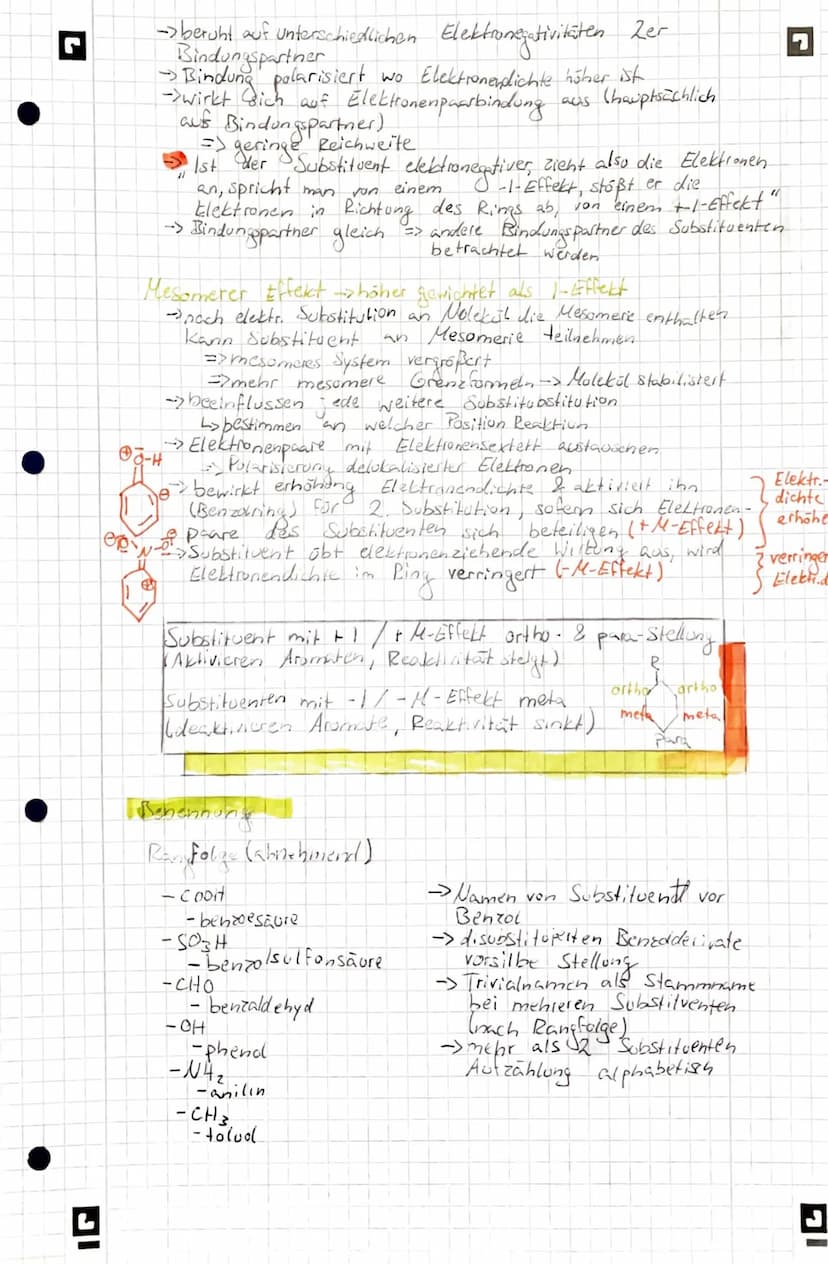 → beruht auf unterschiedlichen Elektronegativitäten 2er
Bindungspartner
→ Bindung polarisiert wo Elektronendichte höher ist
→ wirkt sich auf Elektronenpaarbindung aus (hauptsächlich
auf Bindungspartner)
=> geringe Reichweite
→ "Ist der Substituent elektronegativer, zieht also die Elektronen
an, spricht man von einem -I-Effekt, stößt er die
Elektronen in Richtung des Rings ab, von einem +I-Effekt"
→ Bindungspartner gleich => andere Bindungspartner des Substituenten
betrachtet werden
Mesomerer Effekt → höher gewichtet als I-Effekt
→ nach elektr. Substitution an Molekül die Mesomerie enthalten
kann Substituent an Mesomerie teilnehmen
=> mesomeres System vergrößert
=> mehr mesomere Grenzformeln → Molekül stabilisiert
→ beeinflussen jede weitere Substitubstitution
↳ bestimmen an welcher Position Reaktion
→ Elektronenpaare mit Elektronensextett austauschen
=> Polarisierung delokalisierter Elektronen
→ bewirkt erhöhung Elektronendichte & aktiviert ihn
(Benzolring) für 2. Substitution, sofern sich Elektronen-
paare des Substituenten sich beteiligen (+M-Effekt)
→ Substituent übt elektronenziehende Wirkung aus, wird
Elektronendichte im Ring verringert (-M-Effekt)
⊕ O-H
⊖
⊖ O N O ⊖
⊕
Elektr.-
dichte
erhöhe
verringer
Elektr.d
Substituent mit +I / +M-Effekt ortho- & para-Stellung
(Aktivieren Aromaten, Reaktivität steigt)
Substituenten mit -I / -M-Effekt meta
(deaktivieren Aromate, Reaktivität sinkt)
R
ortho ortho
meta meta
para
Benennung
Rangfolge (abnehmend)
- COOH
- benzoesäure
- SO3H
- benzolsulfonsäure
- CHO
- benzaldehyd
- OH
- phenol
- NH2
- anilin
- CH3
- toluol
→ Namen von Substituent vor
Benzol
→ disubstituierten Benzolderivate
vorsilbe Stellung
→ Trivialnamen als Stammname
bei mehreren Substituenten
(nach Rangfolge)
→ mehr als 2 Substituenten
Aufzählung alphabetisch